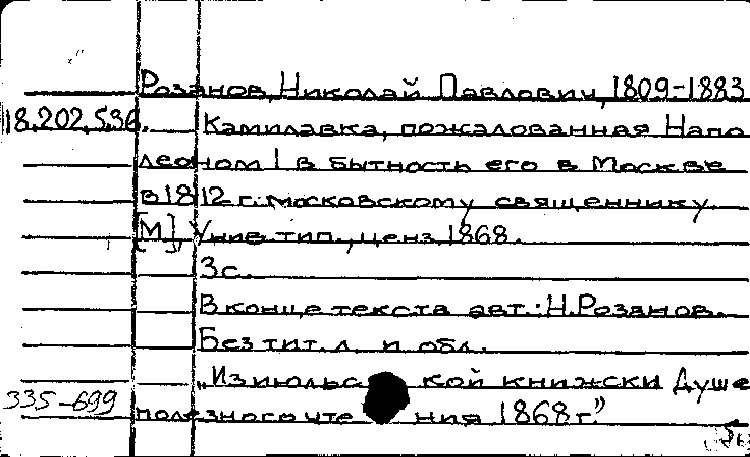 Розанов, Николай Павлович, 1809-1883
18.202.5.36. Камилавка, пожалованная Напо
леоном I в бытность его в Москве
в 1812 г. московскому священнику.
[М], Унив. тип., ценз. 1868.
3 с.
В конце текста авт.: Н. Розанов.
Без тит. л. и обл.
"Из июльской книжски Душе
335-699 полезного чтения 1868 г."